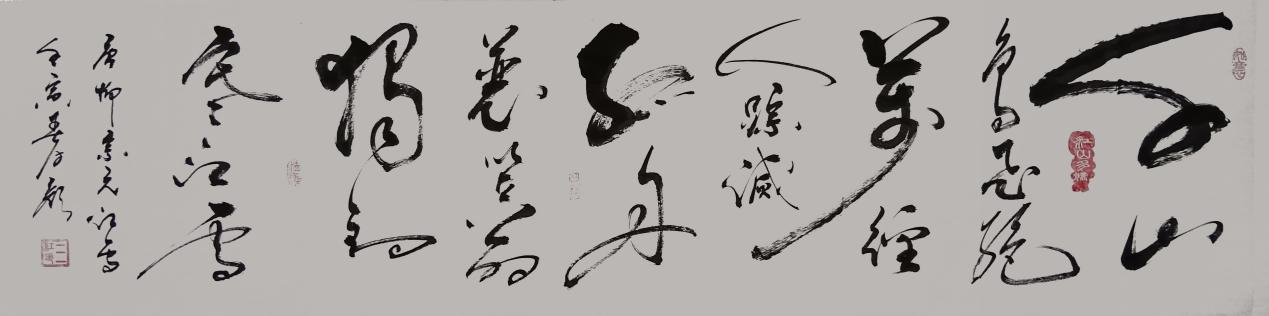 千山
鳥飛絕
萬徑
人蹤滅
孤舟
蓑笠翁
獨釣
寒江雪
唐柳宗元江雪